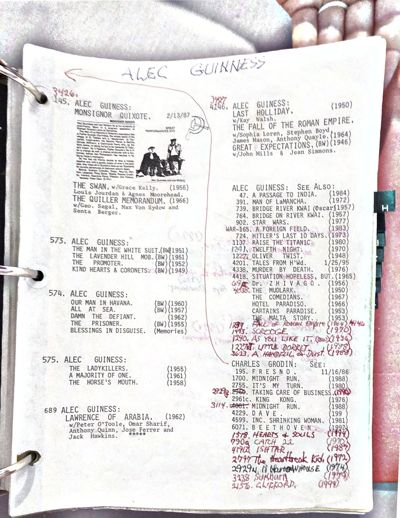 ALEC GUINNESS
3426.
345. ALEC GUINESS:
MONSIGNOR QUIXOTE. 2/13/87
THE SWAN. w/Grace Kelly. (1956)
Louis Jourdan & Agnes Moorehead.
THE QUILLER MEMORANDUM. (1966)
w/Geo. Segal, Max Von Sydow and
Senta Berger.
573. ALEC GUINESS:
THE MAN IN THE WHITE SUIT.(BW)(1951)
THE LAVENDER HILL MOB.(BW)(1951)
THE PROMOTER. (BW)(1952)
KIND HEARTS & CORONETS.(BW)(1949)
574. ALEC GUINESS:
OUR MAN IN HAVANA. (BW)(1960)
ALL AT SEA. (BW)(1957)
DAMN THE DEFIANT. (1962)
THE PRISONER. (BW)(1955)
BLESSINGS IN DISGUISE. (Memories)
575. ALEC GUINESS:
THE LADYKILLERS. (1955)
A MAJORITY OF ONE. (1961)
THE HORSE'S MOUTH. (1958)
689 ALEC GUINESS:
LAWRENCE OF ARABIA. (1962)
w/Peter O'Toole, Omar Sharif,
Anthony Quinn, Jose Ferrer and
Jack Hawkins. *****
4146. ALEC GUINESS: (1950)
LAST HOLLIDAY.
w/Kay Walsh.
THE FALL OF THE ROMAN EMPIRE.
w/Sophia Loren, Stephen Boyd
James Mason, Anthony Quayle.(1964)
GREAT EXPECTATIONS.(BW)(1946)
w/John Mills & Jean Simmons.
ALEC GUINESS: See Also:
47. A PASSAGE TO INDIA. (1984)
391. MAN OF LaMANCHA. (1972)
739. BRIDGE RIVER KWAI (Oscar)(1957)
764. BRIDGE ON RIVER KWAI. (1957)
902. STAR WARS. (1977)
WAR-165. A FOREIGN FIELD. (1993)
724. HITLER'S LAST 10 DAYS. (1973)
1137. RAISE THE TITANIC. (1980)
1241. TWELFTH NIGHT. (1970)
1222. OLIVER TWIST. (1948)
4201. TALES FROM H'Wd. 1/25/95
4338. MURDER BY DEATH. (1976)
4418. SITUATION HOPELESS, BUT.(1965)
Dr. ZHIVAGO. (1965)
THE MUDLARK. (1950)
THE COMEDIANS. (1967)
HOTEL PARADISO. (1966)
CARTAINS PARADISE. (1953)
THE MALTA STORY. (1953)
FALL OF ROMAN EMPIRE (1964) 4146
SCROOGE (1970)
1240. AS YOU LIKE IT.
LITTLE DORRIT. (1988)
3633. A HANDFUL OF DUST. (1988)
CHARLES GRODIN: See:
195. FRESNO. 11/16/86
1700. MIDNIGHT RUN. (1988)
2756. IT'S MY TURN. (1980)
TAKING CARE OF BUSINESS.(1990)
2961c. KING KONG. (1976)
3114. MIDNIGHT RUN. (1988)
4229. DAVE. (199
4599. INC. SHRINKING WOMAN. (1981)
6071. BEETHOVEN. (1992)
1979. HEARTS & SOULS (1994)
790a CATCH 22 (1970)
4190. ISHTAR (1987)
2747 The Heartbreak Kid (1972)
2929n. 11 HARROWHOUSE (1974)
3238 SUNBURN (1979)
2156. CLIFFORD. (1994)